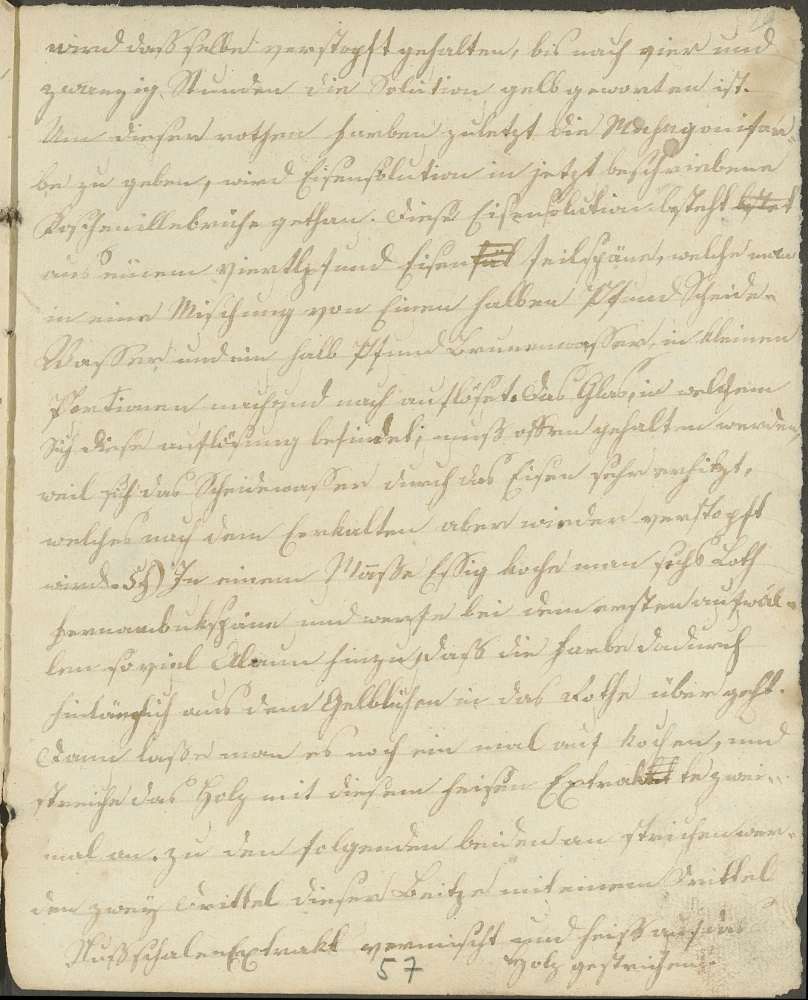 wird dasselbe verstopft gehalten, bis nach vier und
zwanzig Stunden die Solution gelb geworten ist.
Um dieser rothen Farben zuletzt die Mahagonifar=
be zu geben, wird Eisensolution in jetzt beschriebene
Koschenillebrühe gethan. Diese Eisensolution besteht
aus einem viertlpfund Eisen feilspäne, welche man
in eine Mischung von Einen halben Pfund Scheide=
Wasser und ein halb Pfund Brunenwasser, in kleinen
Portionen nach und nach auflöset. Das Glas, in welchem
sich diese auflösung befindet, muss offen gehalten werden,
weil sich das Scheidewasser durch das Eisen sehr erhitzt,
welches nach dem Erkalten aber wieder verstopft
wird. 5§) In einem Maße Essig koche man sechs Loth
Fernambukspäne und werfe bei dem ersten aufwal=
len so viel Alaun hinzu, dass die Farbe dadurch
hinlänglich aus dem Gelblichen in das Rothe über geht.
Dann lasse man es noch ein mal auf kochen, und
streiche das Holz mit diesem heisen Extrakte zwei=
mal an. zu den folgenden beiden an strichen wer=
den zwey Drittel dieser Beitze mit einem Drittel
Nussschalen Extrakt vermischt und heiss auf das
Holz gestrichen.
57